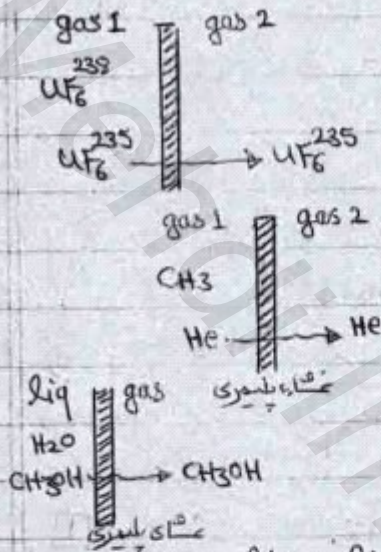 gas 1 gas 2
UF6^238
UF6^235 → UF6^235
gas 1 gas 2
CH3
He → He
غشاء پلیمری
liq gas
H2O
CH3OH → CH3OH
غشای پلیمری